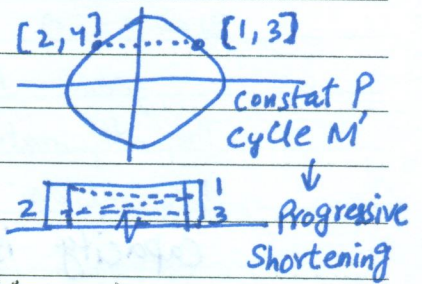 [2,4] [1,3]
constat P,
cycle M
↓
2 1 3 Progressive
Shortening